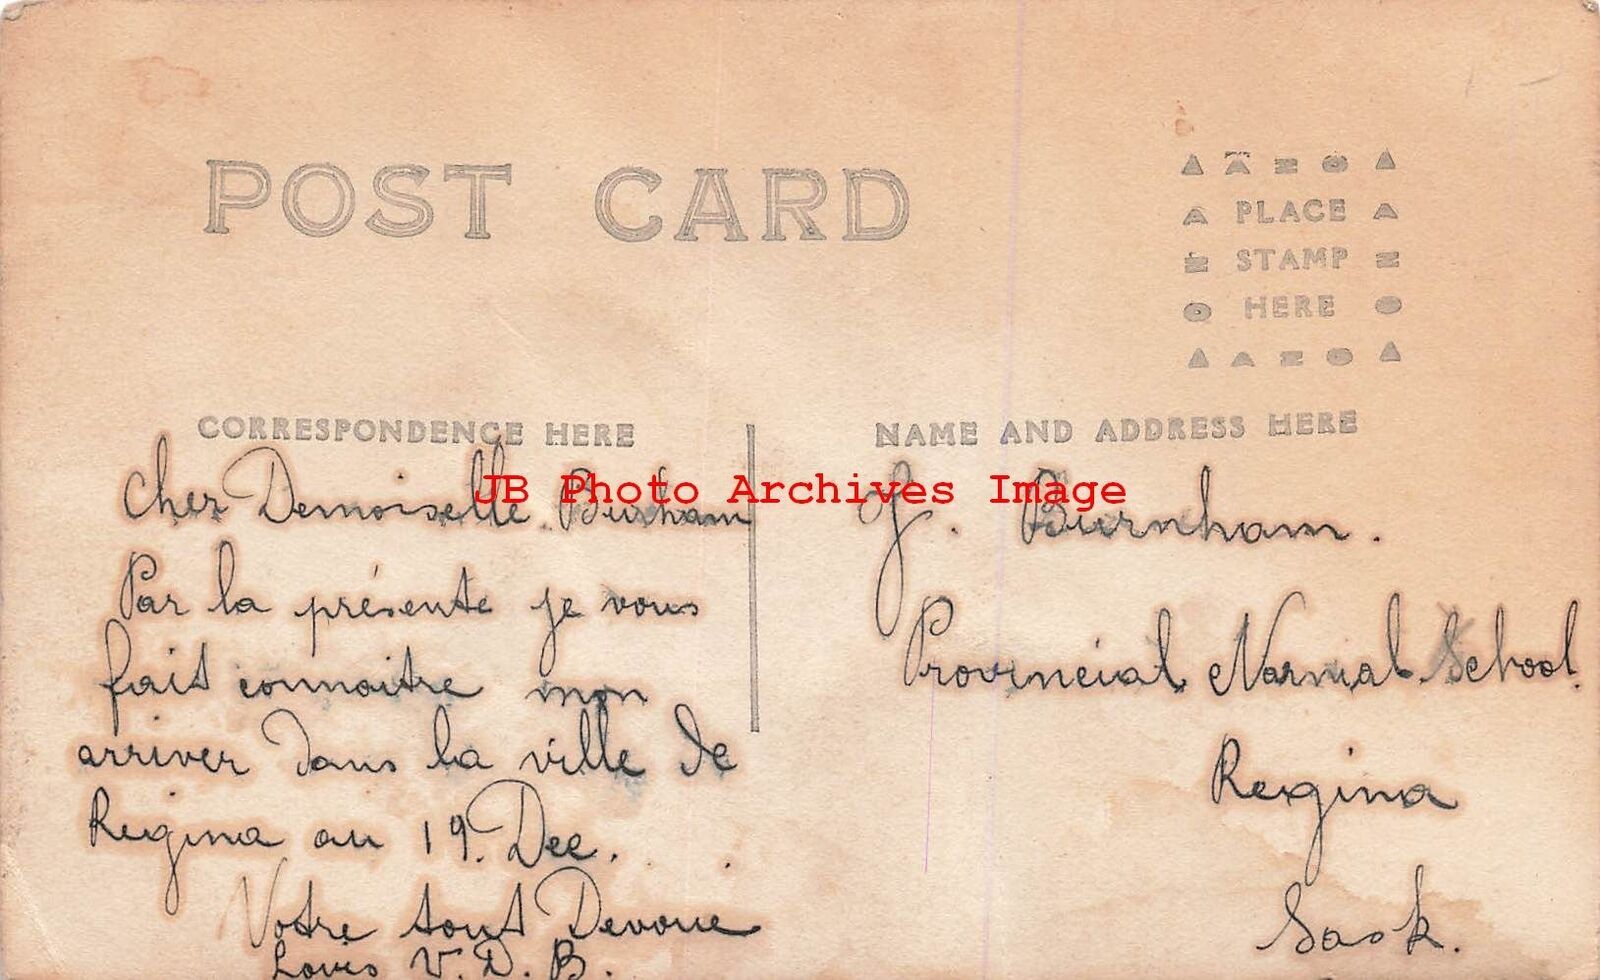 POST CARD
PLACE
STAMP
HERE
CORRESPONDENCE HERE
NAME AND ADDRESS HERE
JB Photo Archives Image
Cher Demoiselle. Burham
Par la présente je vous
fait connaitre mon
arriver dans la ville de
Regina au 19. Dec.
Votre tout Devoue
Louis V. D. B.
J. Burnham.
Provincial Normal School.
Regina
Sask.